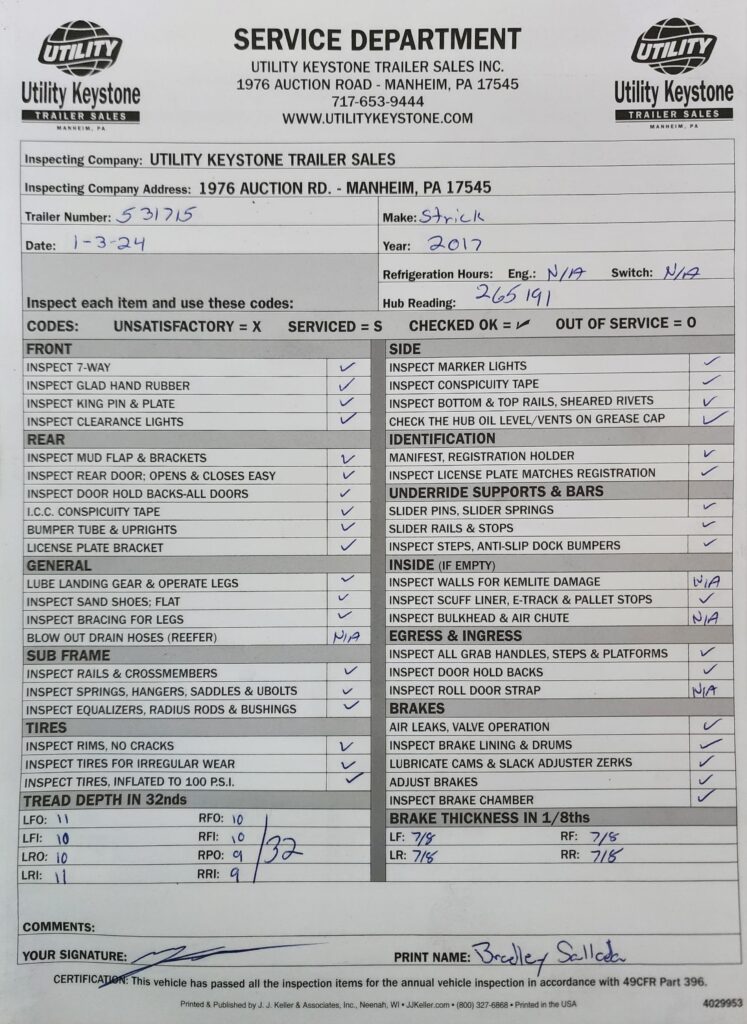 UTILITY
Utility Keystone
TRAILER SALES
MANHEIM, PA
SERVICE DEPARTMENT
UTILITY KEYSTONE TRAILER SALES INC.
1976 AUCTION ROAD - MANHEIM, PA 17545
717-653-9444
WWW.UTILITYKEYSTONE.COM
UTILITY
Utility Keystone
TRAILER SALES
MANHEIM, PA
Inspecting Company: UTILITY KEYSTONE TRAILER SALES
Inspecting Company Address: 1976 AUCTION RD. - MANHEIM, PA 17545
Trailer Number: 531715
Make: Strick
Date: 1-3-24
Year: 2017
Refrigeration Hours: Eng.: N/A Switch: N/A
Inspect each item and use these codes:
Hub Reading: 265191
CODES: UNSATISFACTORY = X SERVICED = S CHECKED OK = ✓ OUT OF SERVICE = O
FRONT
INSPECT 7-WAY ✓
INSPECT GLAD HAND RUBBER ✓
INSPECT KING PIN & PLATE ✓
INSPECT CLEARANCE LIGHTS ✓
REAR
INSPECT MUD FLAP & BRACKETS ✓
INSPECT REAR DOOR; OPENS & CLOSES EASY ✓
INSPECT DOOR HOLD BACKS-ALL DOORS ✓
I.C.C. CONSPICUITY TAPE ✓
BUMPER TUBE & UPRIGHTS ✓
LICENSE PLATE BRACKET ✓
GENERAL
LUBE LANDING GEAR & OPERATE LEGS ✓
INSPECT SAND SHOES; FLAT ✓
INSPECT BRACING FOR LEGS ✓
BLOW OUT DRAIN HOSES (REEFER) N/A
SUB FRAME
INSPECT RAILS & CROSSMEMBERS ✓
INSPECT SPRINGS, HANGERS, SADDLES & UBOLTS ✓
INSPECT EQUALIZERS, RADIUS RODS & BUSHINGS ✓
TIRES
INSPECT RIMS, NO CRACKS ✓
INSPECT TIRES FOR IRREGULAR WEAR ✓
INSPECT TIRES, INFLATED TO 100 P.S.I. ✓
TREAD DEPTH IN 32nds
LFO: 11 RFO: 10
LFI: 10 RFI: 10
LRO: 10 RPO: 9
LRI: 11 RRI: 9
/32
SIDE
INSPECT MARKER LIGHTS ✓
INSPECT CONSPICUITY TAPE ✓
INSPECT BOTTOM & TOP RAILS, SHEARED RIVETS ✓
CHECK THE HUB OIL LEVEL/VENTS ON GREASE CAP ✓
IDENTIFICATION
MANIFEST, REGISTRATION HOLDER ✓
INSPECT LICENSE PLATE MATCHES REGISTRATION ✓
UNDERRIDE SUPPORTS & BARS
SLIDER PINS, SLIDER SPRINGS ✓
SLIDER RAILS & STOPS ✓
INSPECT STEPS, ANTI-SLIP DOCK BUMPERS ✓
INSIDE (IF EMPTY)
INSPECT WALLS FOR KEMLITE DAMAGE N/A
INSPECT SCUFF LINER, E-TRACK & PALLET STOPS ✓
INSPECT BULKHEAD & AIR CHUTE N/A
EGRESS & INGRESS
INSPECT ALL GRAB HANDLES, STEPS & PLATFORMS ✓
INSPECT DOOR HOLD BACKS ✓
INSPECT ROLL DOOR STRAP N/A
BRAKES
AIR LEAKS, VALVE OPERATION ✓
INSPECT BRAKE LINING & DRUMS ✓
LUBRICATE CAMS & SLACK ADJUSTER ZERKS ✓
ADJUST BRAKES ✓
INSPECT BRAKE CHAMBER ✓
BRAKE THICKNESS IN 1/8ths
LF: 7/8 RF: 7/8
LR: 7/8 RR: 7/8
COMMENTS:
YOUR SIGNATURE:
PRINT NAME: Bradley Sallada
CERTIFICATION: This vehicle has passed all the inspection items for the annual vehicle inspection in accordance with 49CFR Part 396.
Printed & Published by J. J. Keller & Associates, Inc., Neenah, WI • JJKeller.com • (800) 327-6868 • Printed in the USA
4029953